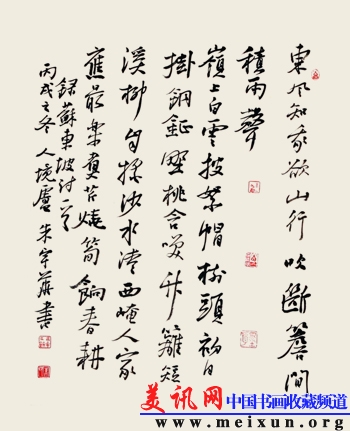 東风知我欲山行吹斷簷間
積雨聲
嶺上白雲披絮帽樹頭初日
掛銅鉦野桃含笑竹籬短
溪柳自搖沙水清西崦人家
應最樂煮芹燒筍餉春耕
録蘇東坡诗一首
丙戌之冬人境廬朱宇書
美讯网 中国书画收藏频道
www.meixun.org